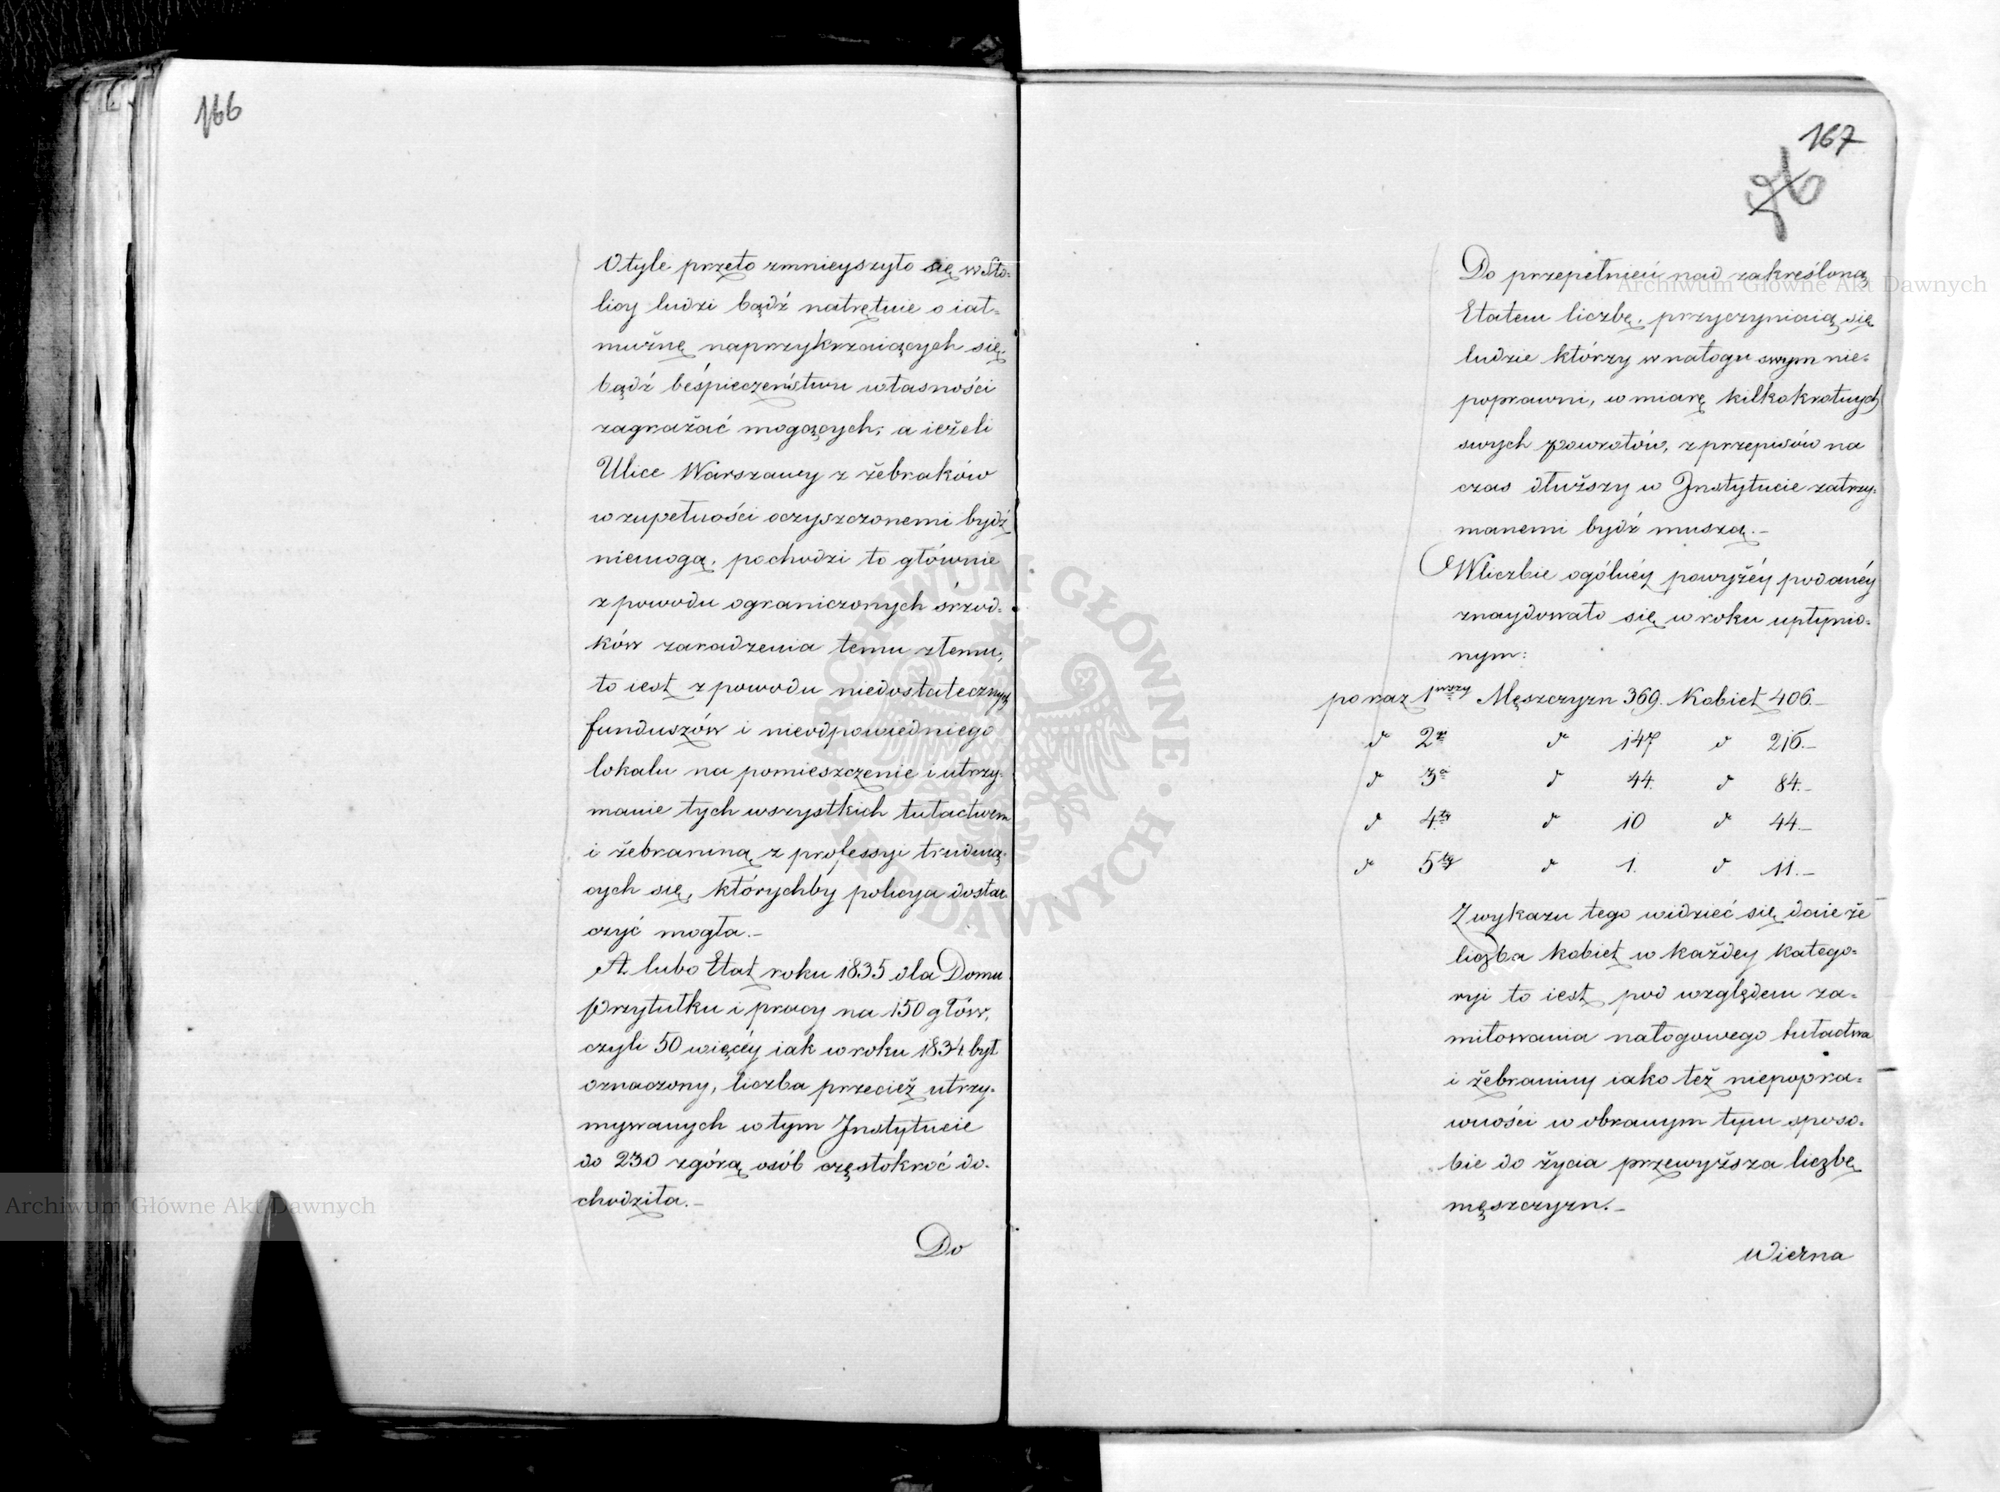 166
O tyle przeto zmnieyszyło się w Sto-
licy ludzi bądź natrętnie o iał-
mużnę naprzykrzaiących się,
bądź beśpieczeństwu własności
zagrażać mogących; a ieżeli
Ulice Warszawy z żebraków
w zupełności oczyszczonemi bydź
niemogą, pochodzi to głównie
z powodu ograniczonych śrzod-
ków zaradzenia temu złemu,
to iest z powodu niedostatecznych
funduszów i nieodpowiedniego
lokalu na pomieszczenie i utrzy-
manie tych wszystkich tułactwem
i żebraniną z professyi trudnią-
cych się, którychby policya dostar-
czyć mogła.-
A lubo Etat roku 1835 dla Domu
przytułku i pracy na 150 głów,
czyli 50 więcéy iak w roku 1834 był
oznaczony, liczba przecież utrzy-
mywanych w tym Instytucie
do 230 zgórą osób częstokroć do-
chodziła.-
Do
167
76
Do przepełnień nad zakreśloną
Etatem liczbę, przyczyniaią się
ludzie którzy w nałogu swym nie-
poprawni, w miarę kilkokrotnych
swych powrotów, z przepisów na
czas dłuższy w Instytucie zatrzy-
manemi bydź muszą.-
W liczbie ogólnéy powyżéy podanéy
znaydowało się w roku upłynio-
nym:
po raz 1wszy Męszczyzn 369. Kobiet 406.-
d 2gi d 147 d 216.-
d 3ci d 44. d 84.-
d 4ty d 10 d 44.-
d 5ty d 1. d 11.-
Z wykazu tego widzieć się daie że
liczba kobiet w każdey katego-
ryi to iest pod względem za-
miłowania nałogowego tułactwa
i żebraniny iako też niepopra-
wności w obranym tym sposo-
bie do życia przewyższa liczbę
męszczyzn.-
Wierna
Archiwum Główne Akt Dawnych
Archiwum Główne Akt Dawnych
ARCHIWUM GŁÓWNE AKT DAWNYCH